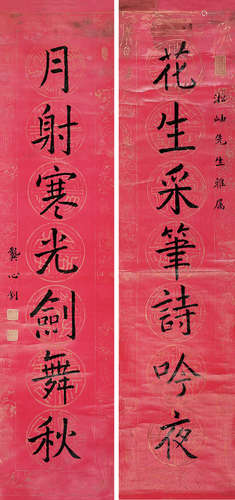 淞岫先生雅属
花生采筆詩吟夜
月射寒光劍舞秋
龔心釗